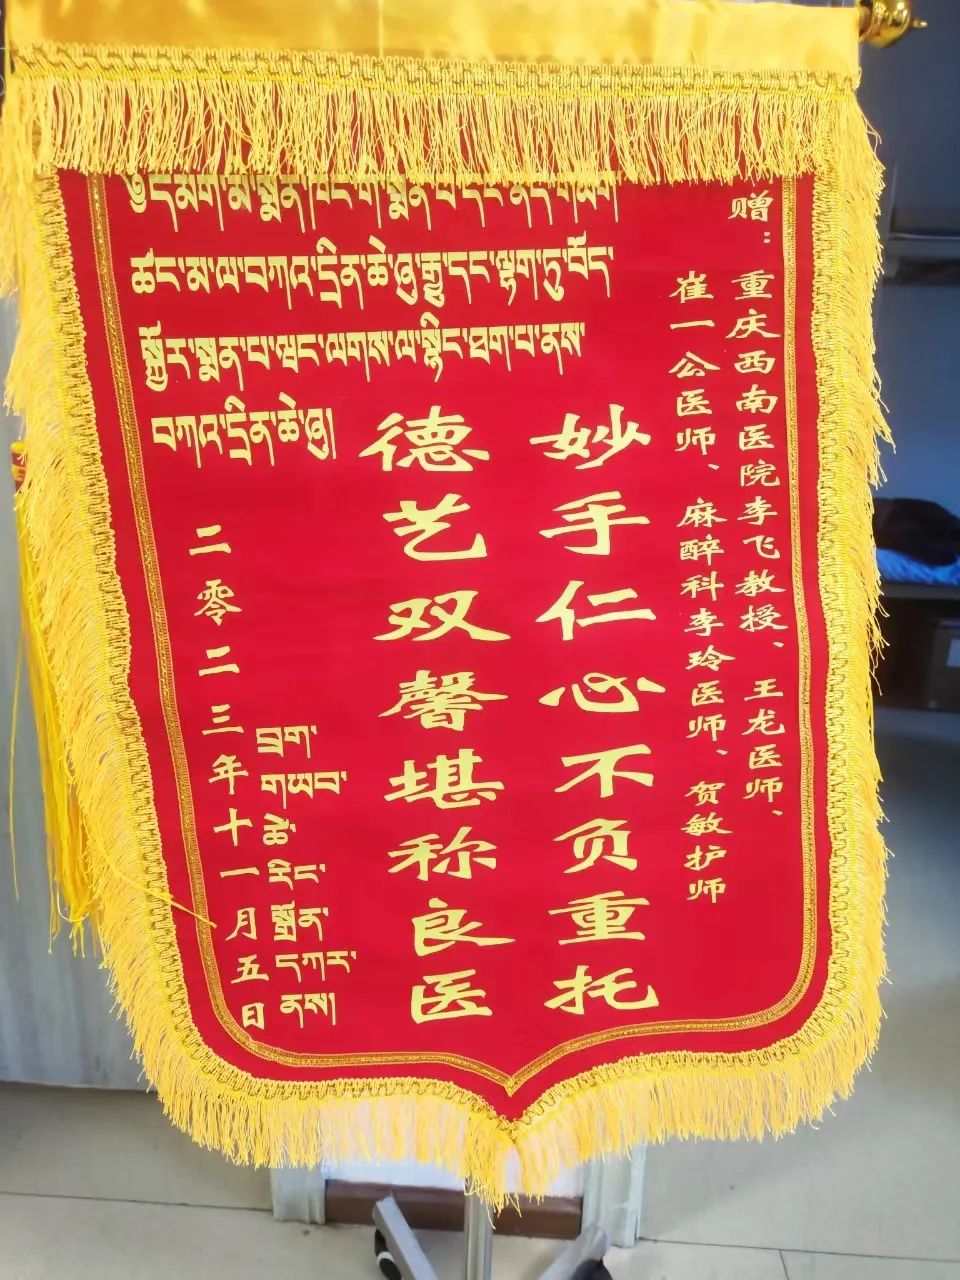 ཙང་མ་ལ་བཀའ་དྲིན་ཆེ་ཞུ་རྒྱུ་དང་ལྷག་ཏུ་བོད་
སྐྱོར་སྨན་པ་ལྦང་ལགས་ལ་སྙིང་ཐག་པ་ནས་
བཀའ་དྲིན་ཆེ་ཞུ།
赠：
重庆西南医院李飞教授、王龙医师、
崔一公医师、麻醉科李玲医师、贺敏护师
妙手仁心不负重托
德艺双馨堪称良医
བྲག་
གཡབ་
ཚེ་
རིང་
སྒྲོན་
དཀར་
ནས།
二零二三年十一月五日